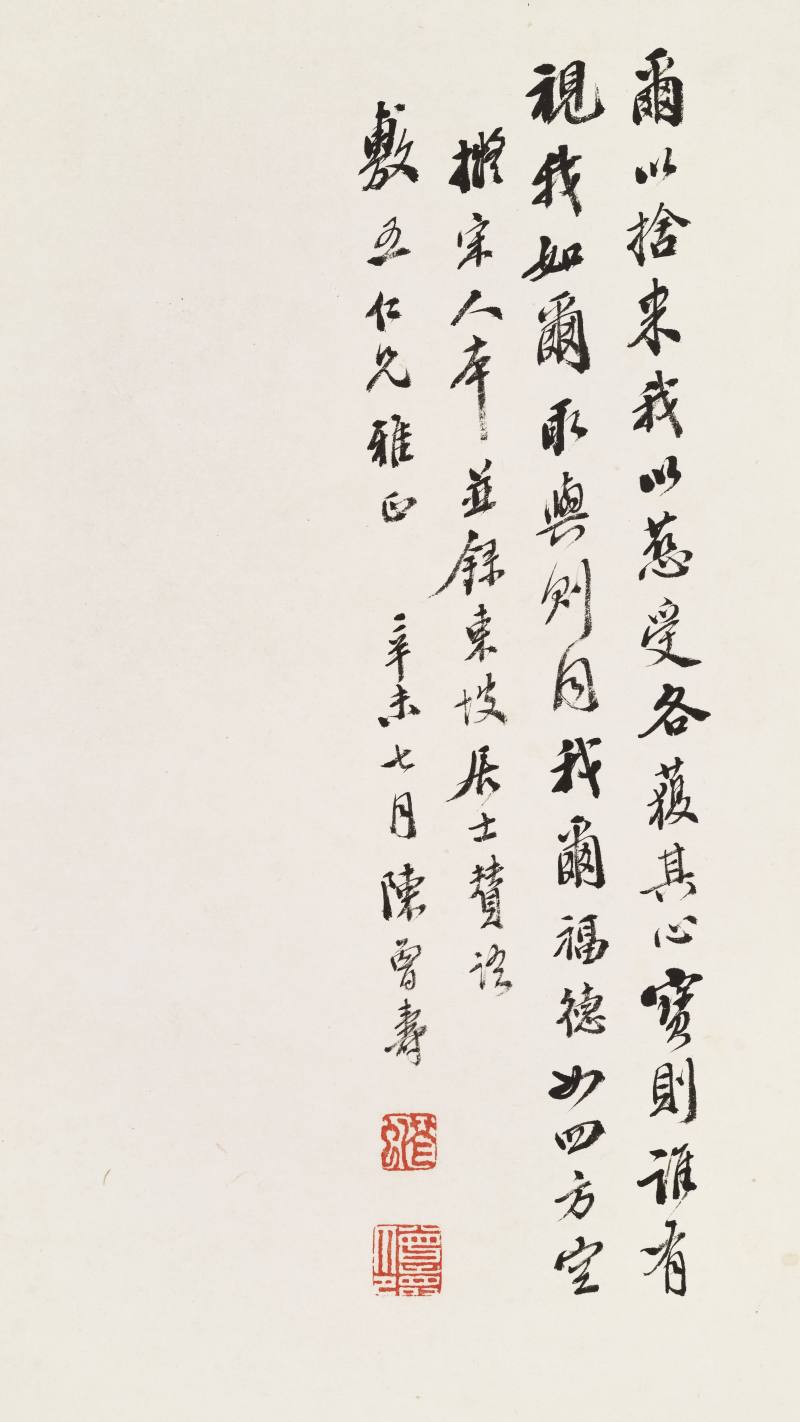 爾以捨來我以慈受各獲其心寶則誰有
視我如爾取與則同我爾福德如四方空
撫宋人本並錄東坡居士贊語
敷五仁兄雅正 辛未七月陳曾壽